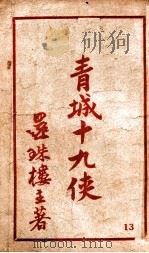 青城十九俠
還珠樓主著
13